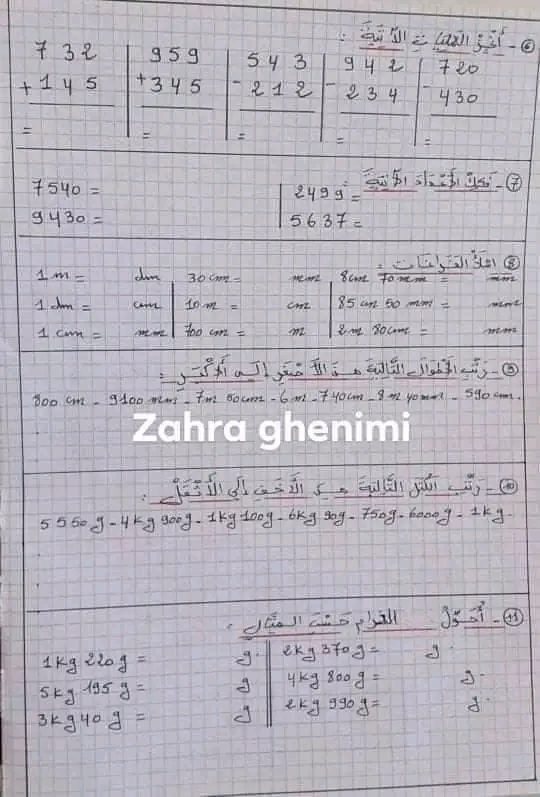 6 - أنجز العمليات الآتية :
732 | 959 | 543 | 942 | 720
+ 145 | + 345 | - 212 | - 234 | - 430
= | = | = | = | =
7 - أفكك الأعداد الآتية
7540 = | 2499 =
9430 = | 5637 =
8 - املأ الفراغات :
1 m = dm | 30 cm = mm | 8cm 70 mm = mm
1 dm = cm | 10 m = cm | 85 cm 50 mm = mm
1 cm = mm | 700 cm = m | 2m 80cm = mm
9 - رَتِّب الأطوال التَّالية من الأصغر إلى الأكبر :
800 cm - 9100 mm - 7m 50cm - 6m - 740cm - 8m 40mm - 590 cm.
Zahra ghenimi
10 - رَتِّب الكتل التَّالية من الأخف إلى الأثقل :
5550g - 4kg 900g - 1kg 100g - 6kg 90g - 750g - 6000g - 1kg.
11 - أحوّل الغرام حسب المثال :
1kg 220g = g. | 2kg 370g = g.
5kg 195g = g | 4kg 800g = g.
3kg 40g = g | 2kg 990g = g.